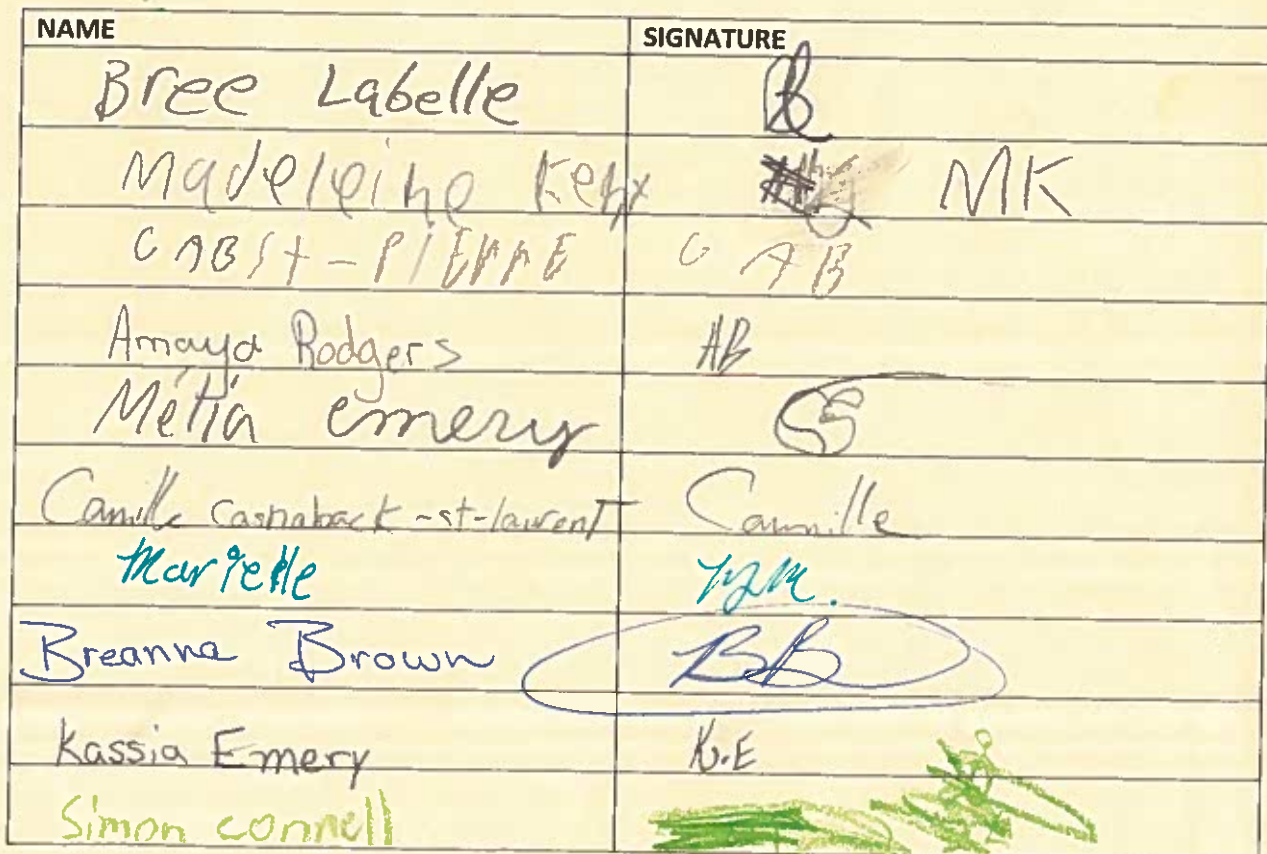 NAME SIGNATURE
Bree Labelle
Madeleine Kerr MK
CABST-PIERRE CAB
Amaya Rodgers AB
Métia emery
Camille Casnaback-st-laurent Camille
Marielle MM.
Breanna Brown BB
Kassia Emery K.E
Simon connell